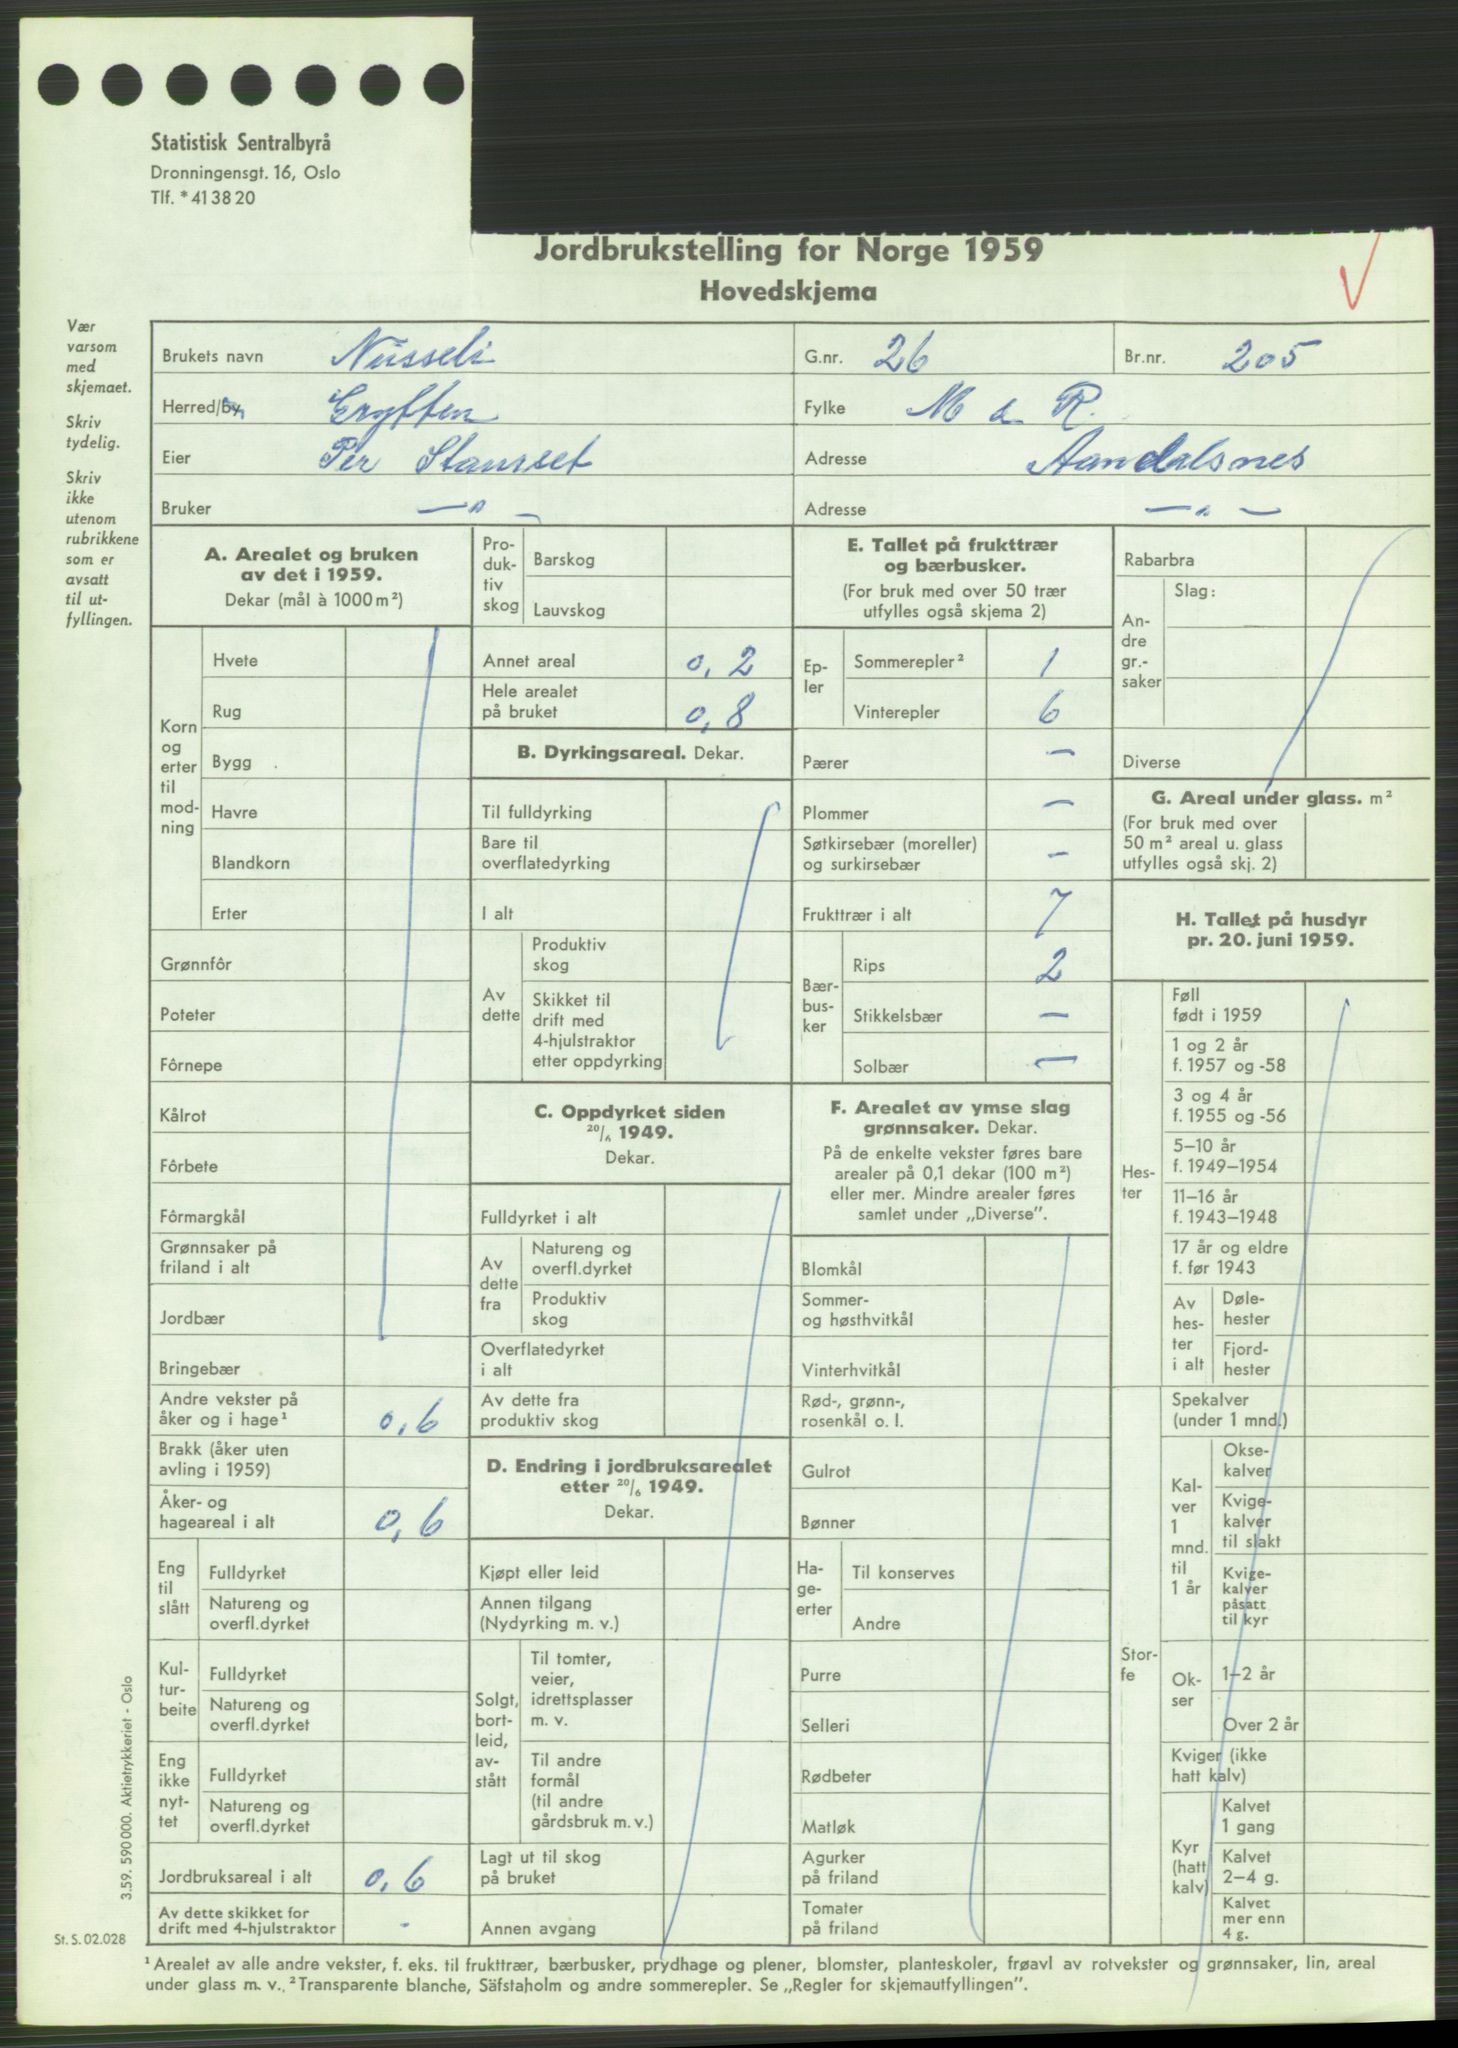 Statistisk Sentralbyrå
Dronningensgt. 16, Oslo
Tlf. * 41 38 20
Jordbrukstelling for Norge 1959
Hovedskjema
Vær
varsom
med
skjemaet.
Skriv
tydelig.
Skriv
ikke
utenom
rubrikkene
som er
avsatt
til ut-
fyllingen.
Brukets navn Nüsseli G.nr. 26 Br.nr. 205
Herred/by Grytten Fylke M & R.
Eier Per Stavseet Adresse Aandalsnes
Bruker — " — Adresse — " —
A. Arealet og bruken
av det i 1959.
Dekar (mål à 1000 m²)
Korn
og
erter
til
mod-
ning
Hvete
Rug
Bygg
Havre
Blandkorn
Erter
Grønnfôr
Poteter
Fôrnepe
Kålrot
Fôrbete
Fôrmargkål
Grønnsaker på
friland i alt
Jordbær
Bringebær
Andre vekster på
åker og i hage¹ 0,6
Brakk (åker uten
avling i 1959)
Åker- og
hageareal i alt 0,6
Eng
til
slått
Fulldyrket
Natureng og
overfl.dyrket
Kul-
tur-
beite
Fulldyrket
Natureng og
overfl.dyrket
Eng
ikke
nyt-
tet
Fulldyrket
Natureng og
overfl.dyrket
Jordbruksareal i alt 0,6
Av dette skikket for
drift med 4-hjulstraktor -
Pro-
duk-
tiv
skog
Barskog
Lauvskog
Annet areal 0,2
Hele arealet
på bruket 0,8
B. Dyrkingsareal. Dekar.
Til fulldyrking
Bare til
overflatedyrking
I alt
Av
dette
Produktiv
skog
Skikket til
drift med
4-hjulstraktor
etter oppdyrking
C. Oppdyrket siden
20/6 1949.
Dekar.
Fulldyrket i alt
Av
dette
fra
Natureng og
overfl.dyrket
Produktiv
skog
Overflatedyrket
i alt
Av dette fra
produktiv skog
D. Endring i jordbruksarealet
etter 20/6 1949.
Dekar.
Kjøpt eller leid
Annen tilgang
(Nydyrking m. v.)
Solgt,
bort-
leid,
av-
stått
Til tomter,
veier,
idrettsplasser
m. v.
Til andre
formål
(til andre
gårdsbruk m. v.)
Lagt ut til skog
på bruket
Annen avgang
E. Tallet på frukttrær
og bærbusker.
(For bruk med over 50 trær
utfylles også skjema 2)
Ep-
ler
Sommerepler² 1
Vinterepler 6
Pærer —
Plommer —
Søtkirsebær (moreller)
og surkirsebær —
Frukttrær i alt 7
Bær-
bus-
ker
Rips 2
Stikkelsbær —
Solbær —
F. Arealet av ymse slag
grønnsaker. Dekar.
På de enkelte vekster føres bare
arealer på 0,1 dekar (100 m²)
eller mer. Mindre arealer føres
samlet under „Diverse”.
Blomkål
Sommer-
og høsthvitkål
Vinterhvitkål
Rød-, grønn-,
rosenkål o. l.
Gulrot
Bønner
Ha-
ge-
erter
Til konserves
Andre
Purre
Selleri
Rødbeter
Matløk
Agurker
på friland
Tomater
på friland
Rabarbra
An-
dre
gr.-
saker
Slag:
Diverse
G. Areal under glass. m²
(For bruk med over
50 m² areal u. glass
utfylles også skj. 2)
H. Tallet på husdyr
pr. 20. juni 1959.
Hes-
ter
Føll
født i 1959
1 og 2 år
f. 1957 og -58
3 og 4 år
f. 1955 og -56
5–10 år
f. 1949–1954
11–16 år
f. 1943–1948
17 år og eldre
f. før 1943
Av
hes-
ter
i alt
Døle-
hester
Fjord-
hester
Stor-
fe
Spekalver
(under 1 mnd.)
Kal-
ver
1
mnd.
til
1 år
Okse-
kalver
Kvige-
kalver
til slakt
Kvige-
kalver
påsatt
til kyr
Ok-
ser
1–2 år
Over 2 år
Kviger (ikke
hatt kalv)
Kyr
(hatt
kalv)
Kalvet
1 gang
Kalvet
2–4 g.
Kalvet
mer enn
4 g.
3.59. 590 000. Aktietrykkeriet - Oslo
St. S. 02.028
¹ Arealet av alle andre vekster, f. eks. til frukttrær, bærbusker, prydhage og plener, blomster, planteskoler, frøavl av rotvekster og grønnsaker, lin, areal
under glass m. v., ² Transparente blanche, Säfstaholm og andre sommerepler. Se „Regler for skjemautfyllingen”.